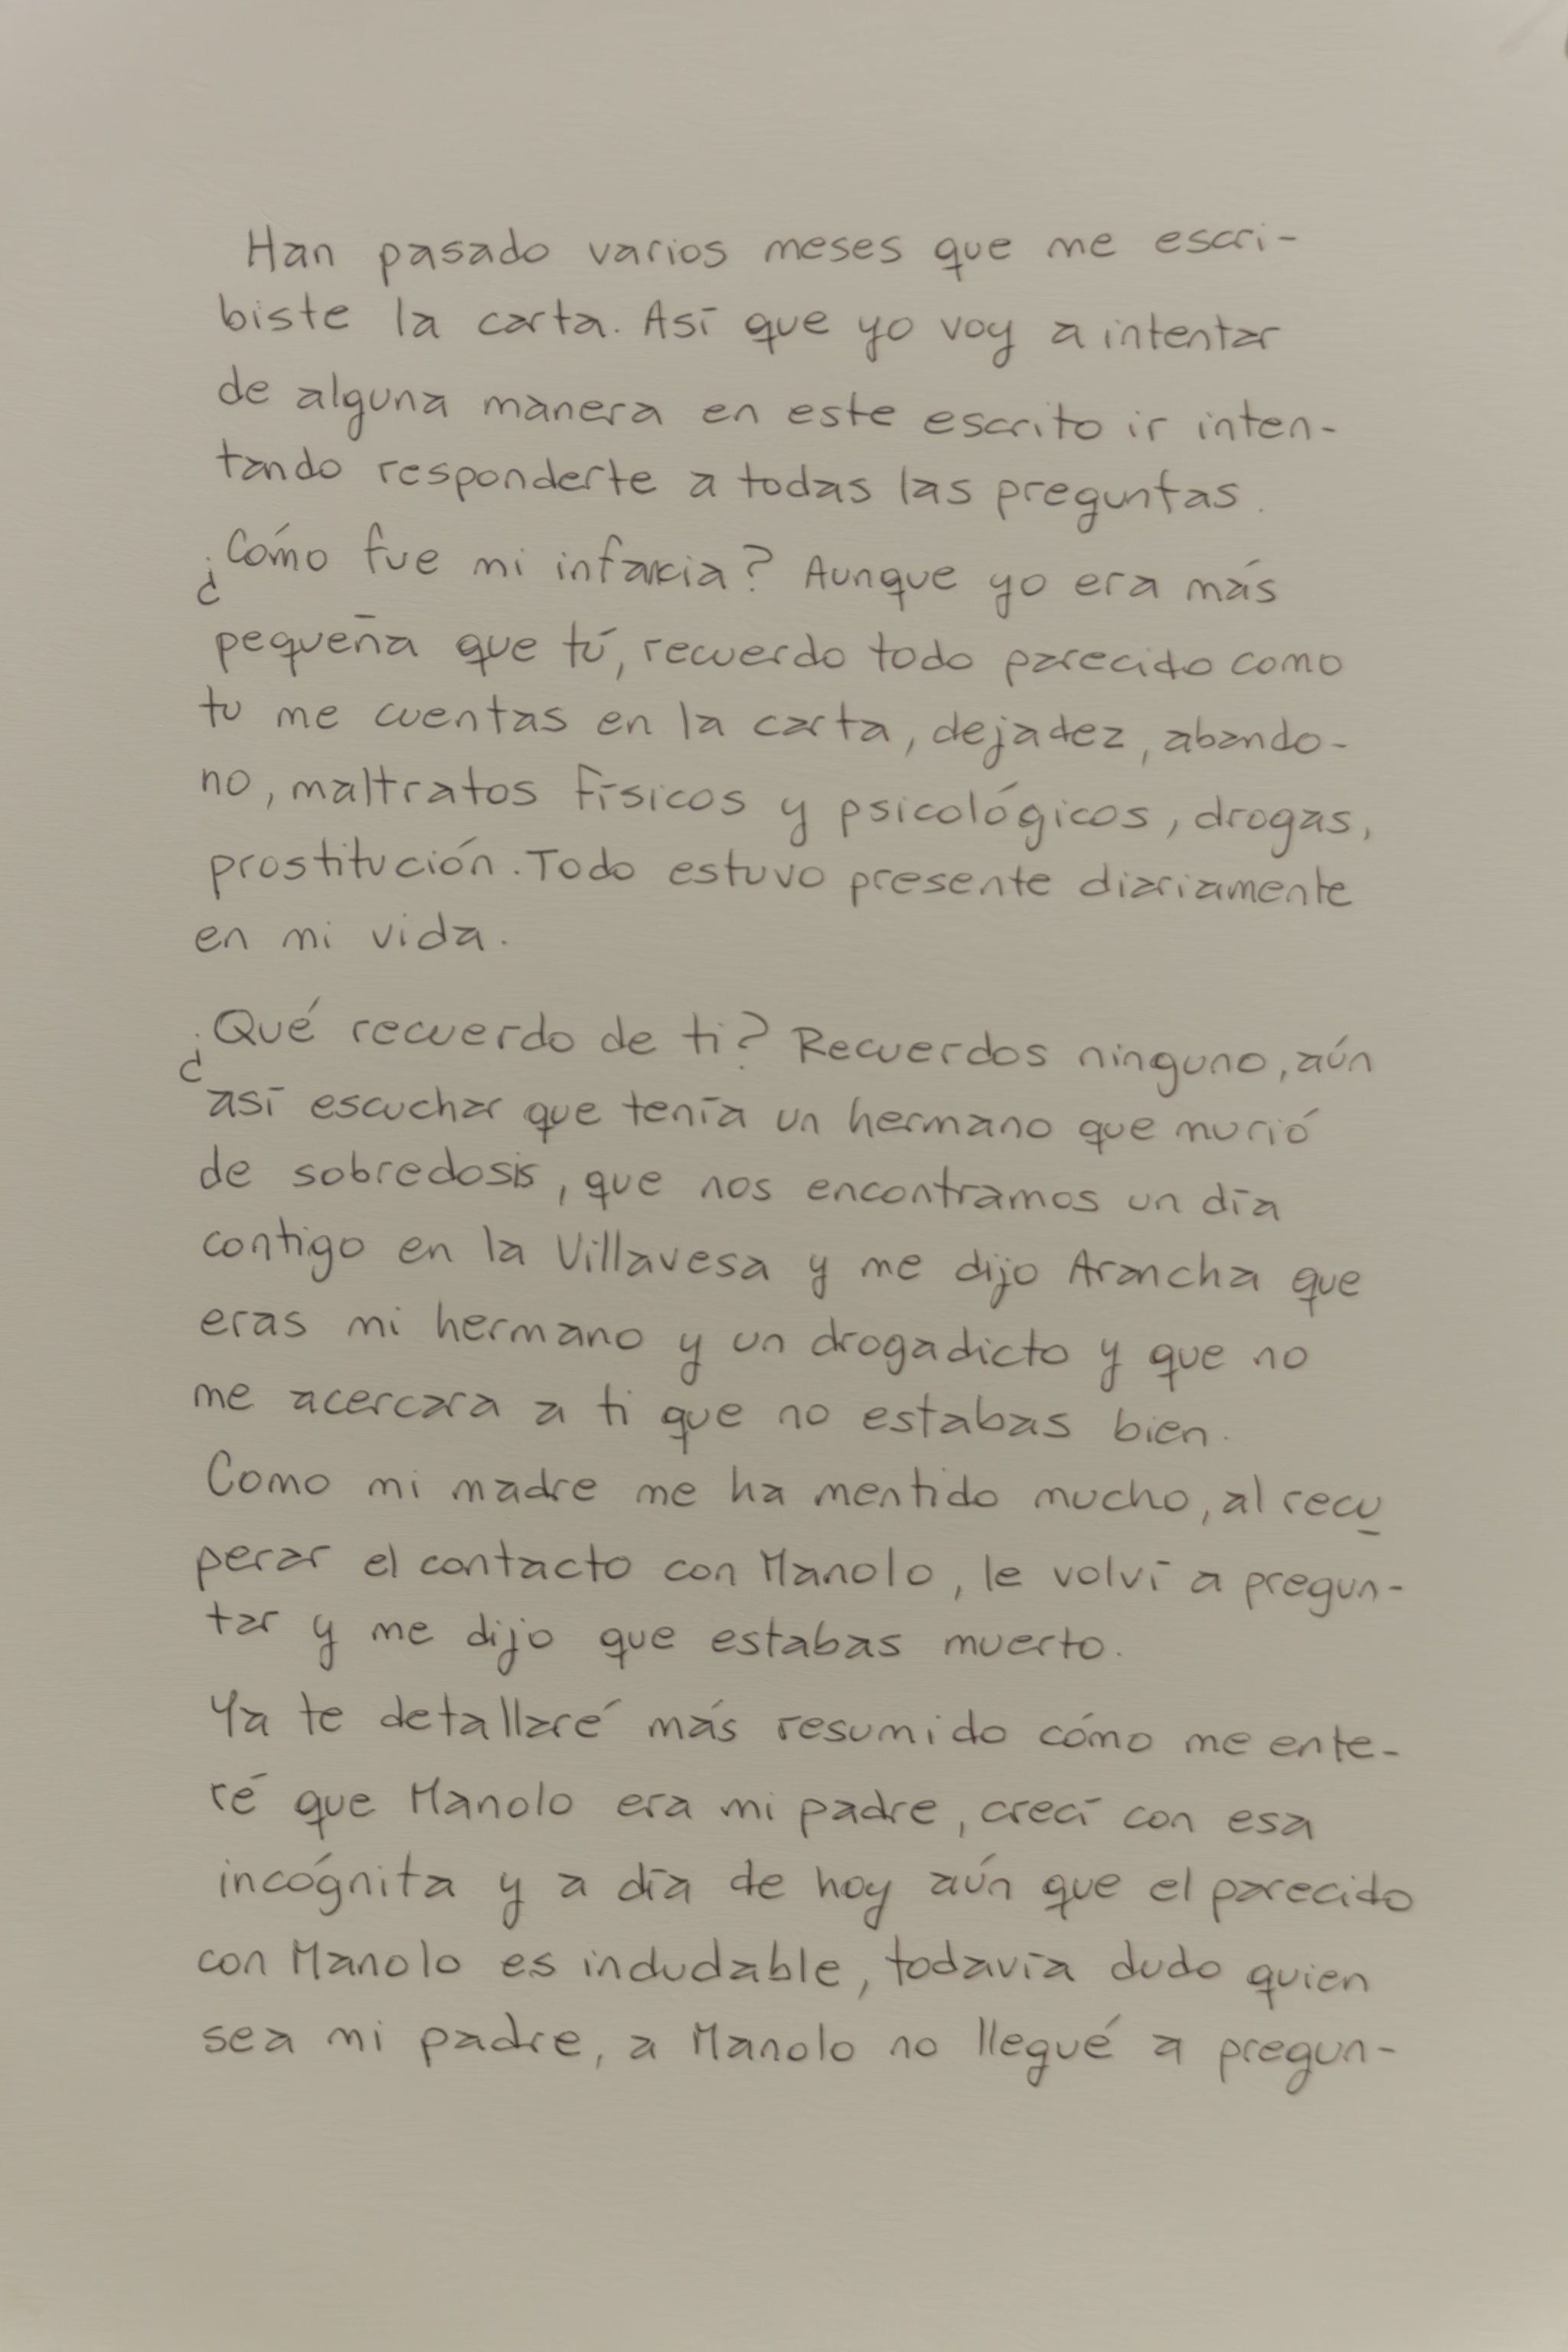 Han pasado varios meses que me escri-
biste la carta. Así que yo voy a intentar
de alguna manera en este escrito ir inten-
tando responderte a todas las preguntas.
¿Cómo fue mi infancia? Aunque yo era más
pequeña que tú, recuerdo todo parecido como
tu me cuentas en la carta, dejadez, abando-
no, maltratos físicos y psicológicos, drogas,
prostitución. Todo estuvo presente diariamente
en mi vida.
¿Qué recuerdo de ti? Recuerdos ninguno, aún
así escuchar que tenía un hermano que murió
de sobredosis, que nos encontramos un día
contigo en la Villavesa y me dijo Arancha que
eras mi hermano y un drogadicto y que no
me acercara a ti que no estabas bien.
Como mi madre me ha mentido mucho, al recu
perar el contacto con Manolo, le volví a pregun-
tar y me dijo que estabas muerto.
Ya te detallaré más resumido cómo me ente-
ré que Manolo era mi padre, crecí con esa
incógnita y a día de hoy aún que el parecido
con Manolo es indudable, todavía dudo quien
sea mi padre, a Manolo no llegué a pregun-